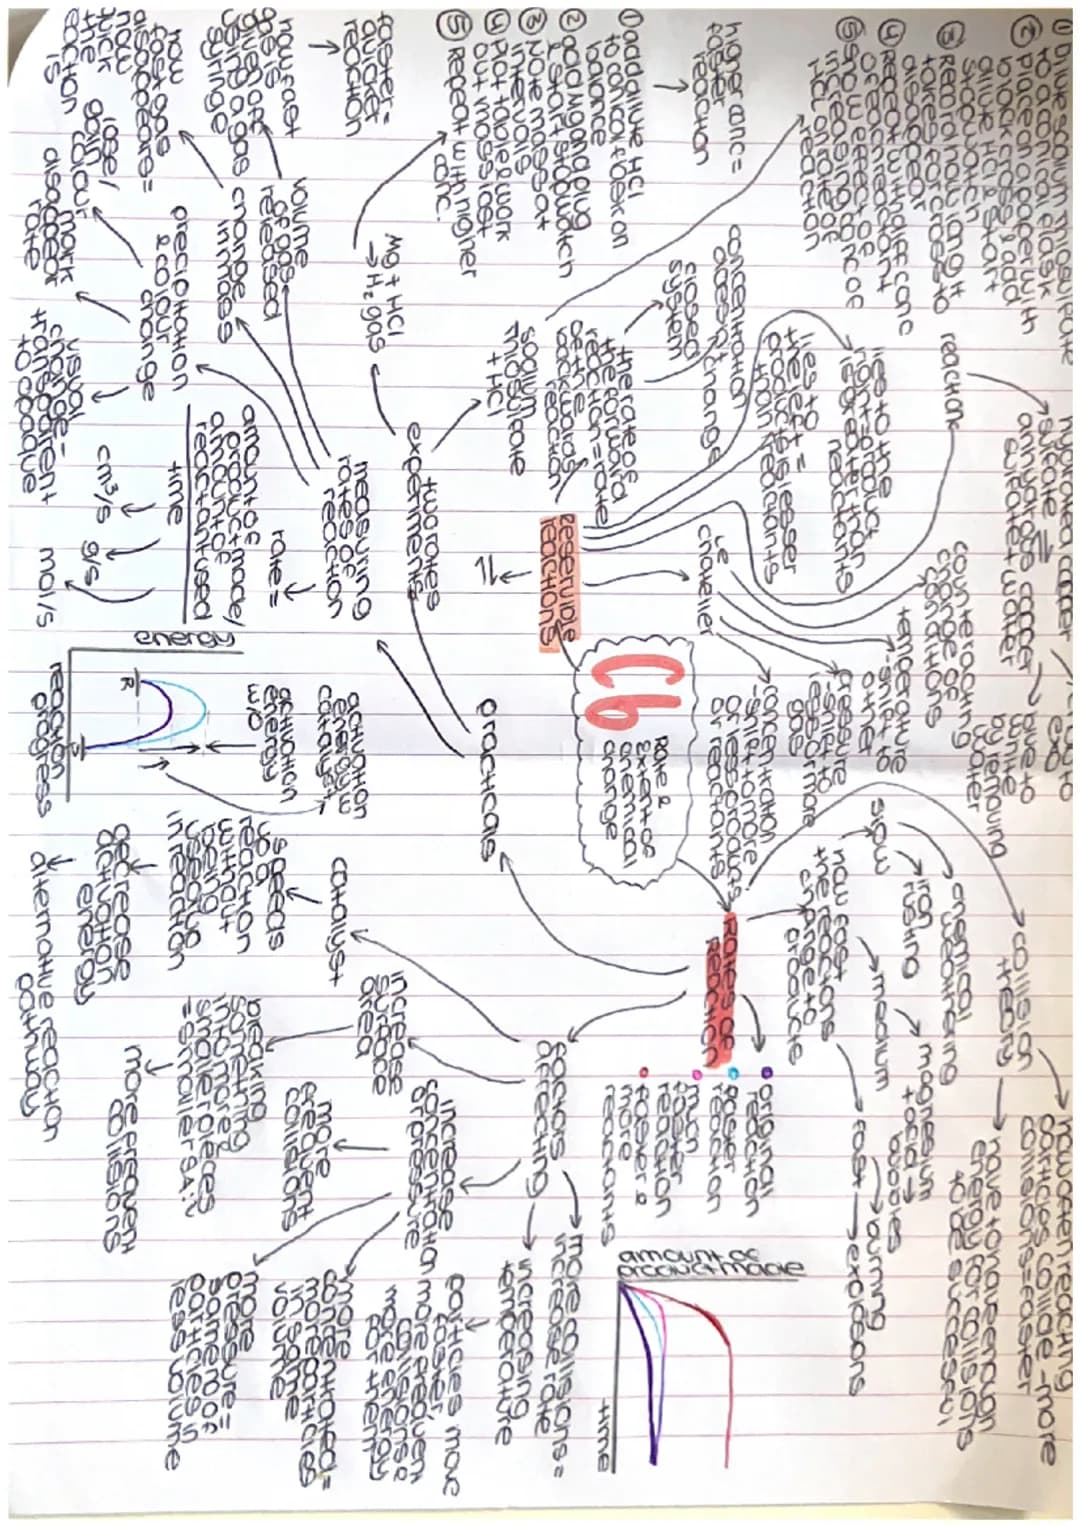 C6
Rate &
Extent of
chemical
change
Rates of
Reaction
how fast
the reactions
change to
products
slow
iron
rusting
chemical
weathering
medium
magnesium
+ acid →
bubbles
fast
burning
explosions
collision
theory
how often reacting
particles collide - more
collisions = faster
have to have enough
energy for collisions
to be successful
original
reaction
faster
reaction
much
faster
reaction
faster &
more
reactants
amount of
product made
time
factors
affecting
more collisions =
increase rate
increasing
temperature
particles move
faster,
more frequent
collisions &
more energy
for them
increase
concentration
or pressure
more
frequent
collisions
more
concentrated =
more particles
in same
volume
more
pressure =
same no of
particles in
less volume
increase
surface
area
breaking
something
into more
smaller pieces
= smaller SA:V
more frequent
collisions
catalyst
speeds
up a
reaction
without
being
used up
in reaction
decrease
activation
energy
alternative reaction
pathway
practicals
two rates
experiments
Mg + HCl
→ H₂ gas
① add dilute HCl
to conical flask on
balance
② add Mg and plug
& start stopwatch
③ Note mass at
intervals
④ Plot table & work
out mass lost
⑤ Repeat with higher
conc.
higher conc =
faster
reaction
sodium
thiosulfate
+ HCl
to a conical flask
② place on paper with
black cross & add
dilute HCl & start
stopwatch
③ Record how long it
takes for cross to
disappear
④ Repeat with diff conc
of each reactant
⑤ show effect of conc of
HCl on rate of
reaction
measuring
rates of
reaction
rate =
amount of
product made/
amount of
reactant used
time
cm³/s
g/s
mol/s
volume
of gas
released
how fast
gas is
given off
using a gas
syringe
faster =
quicker
reaction
change
in mass
how
fast gas
disappears =
how
quick
the
reaction
is
precipitation
& colour
change
lose/
gain
colour
mark
disappear
rate
visual
change -
transparent
to opaque
energy
reaction
progress
R
activation
energy w
catalyst
activation
energy
w/o
Reversible
reactions
⇌
the rate of
the forward
reaction = rate
of the
backwards
reaction
closed
system
concentration
doesn't change
lies to
the left =
lesser
products
than reactants
lies to the
right = product
is greater than
reactants
reaction
⇌
anhydrous copper
sulfate + water
Le
Chatelier
counteracting
change of
conditions
temperature
- shift to
other
pressure
- shift to
less or more
gas
concentration
- shift to more
or less products
or reactants